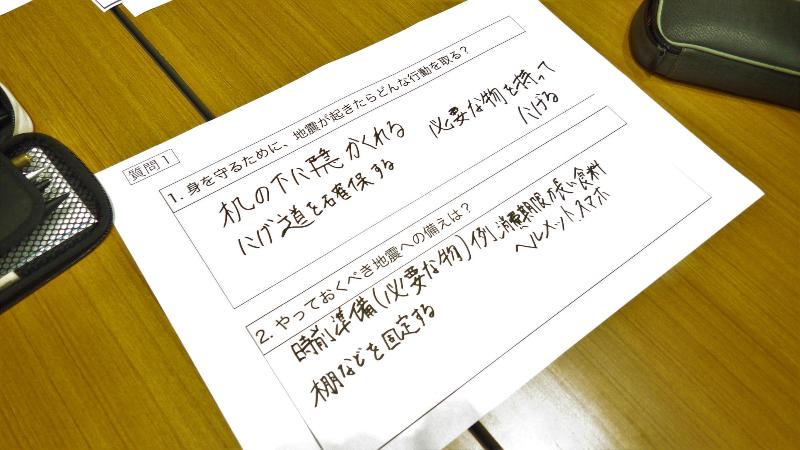 質問1
1. 身を守るために、地震が起きたらどんな行動を取る?
机の下に隠 かくれる
にげ道を確保する
必要な物を持って
にげる
2. やっておくべき地震への備えは?
時前準備(必要な物)例:消費期限が長い食料
ヘルメット、スマホ
棚などを固定する